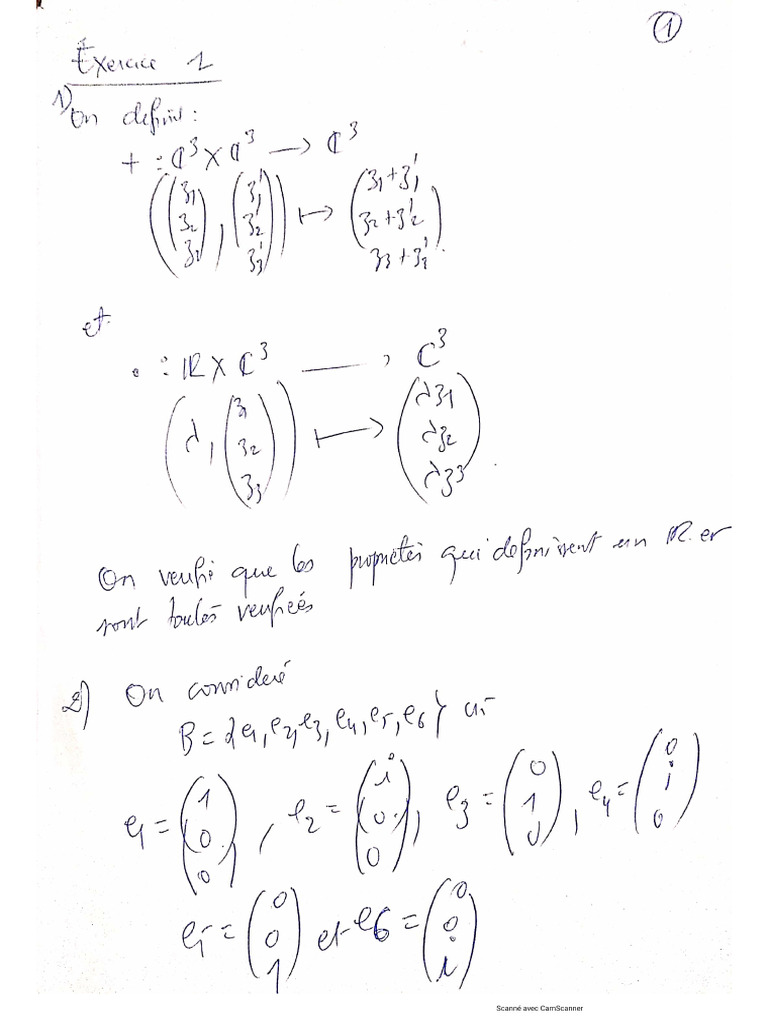 ①
Exercice 1
1) On definit:
+ : ℂ³ × ℂ³ → ℂ³
((z₁ z₂ z₂), (z₁' z₂' z₃')) ↦ (z₁+z₁' z₂+z₂' z₃+z₃')
et
• : ℝ × ℂ³ → ℂ³
(λ, (z₁ z₂ z₃)) ↦ (λz₁ λz₂ λz₃)
On verifie que les proprietés qui definissent un ℝ.ev
sont toutes verifiées
2) On consideré
B = {e₁, e₂, e₃, e₄, e₅, e₆} où
e₁ = (1 0 0), e₂ = (i 0 0), e₃ = (0 1 0), e₄ = (0 i 0)
e₅ = (0 0 1) et e₆ = (0 0 i)
Scanné avec CamScanner